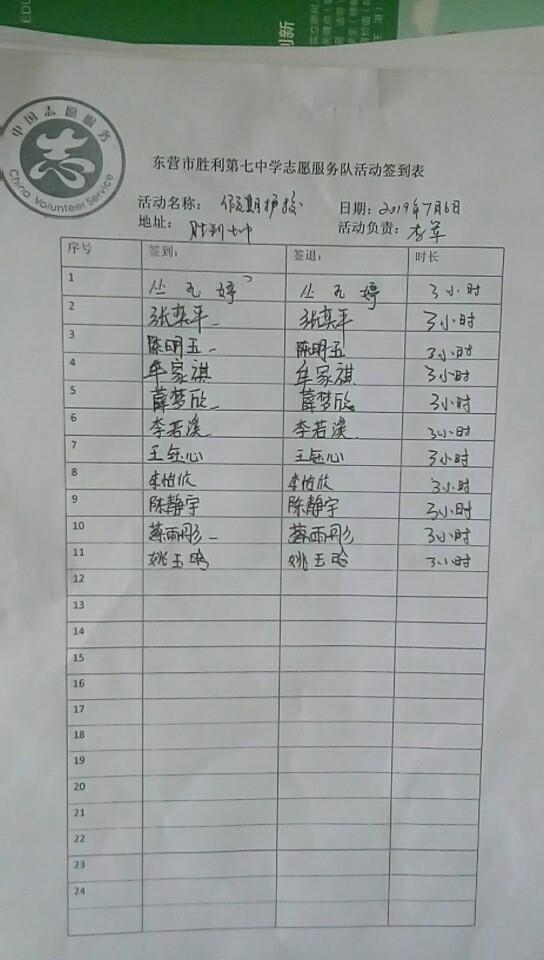 EDU
创新
中国志愿服务
China Volunteer Service
东营市胜利第七中学志愿服务队活动签到表
活动名称： 假期护校 日期：2019年7月6日
地址： 胜利七中 活动负责：李军
序号 签到： 签退： 时长
1 丛孔婷 丛孔婷 3小时
2 张奕平 张奕平 3小时
3 陈明五 陈明五 3小时
4 牟家祺 牟家祺 3小时
5 薛梦欣 薛梦欣 3小时
6 李若溪 李若溪 3小时
7 王钰心 王钰心 3小时
8 李怡欣 李怡欣 3小时
9 陈静宇 陈静宇 3小时
10 雨彤 雨彤 3小时
11 姚玉晗 姚玉晗 3小时
12
13
14
15
16
17
18
19
20
21
22
23
24